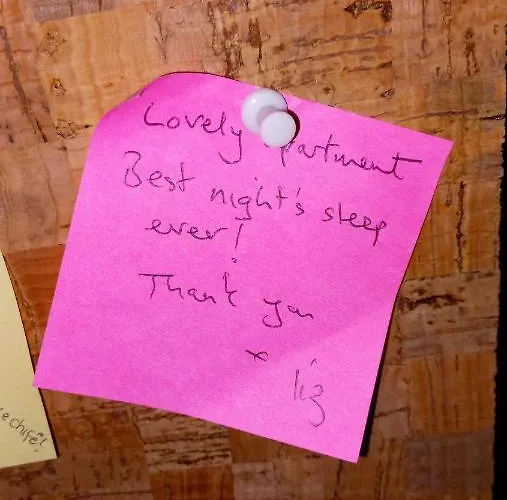 Lovely partment
Best night's sleep
ever!
Thank you
x liz